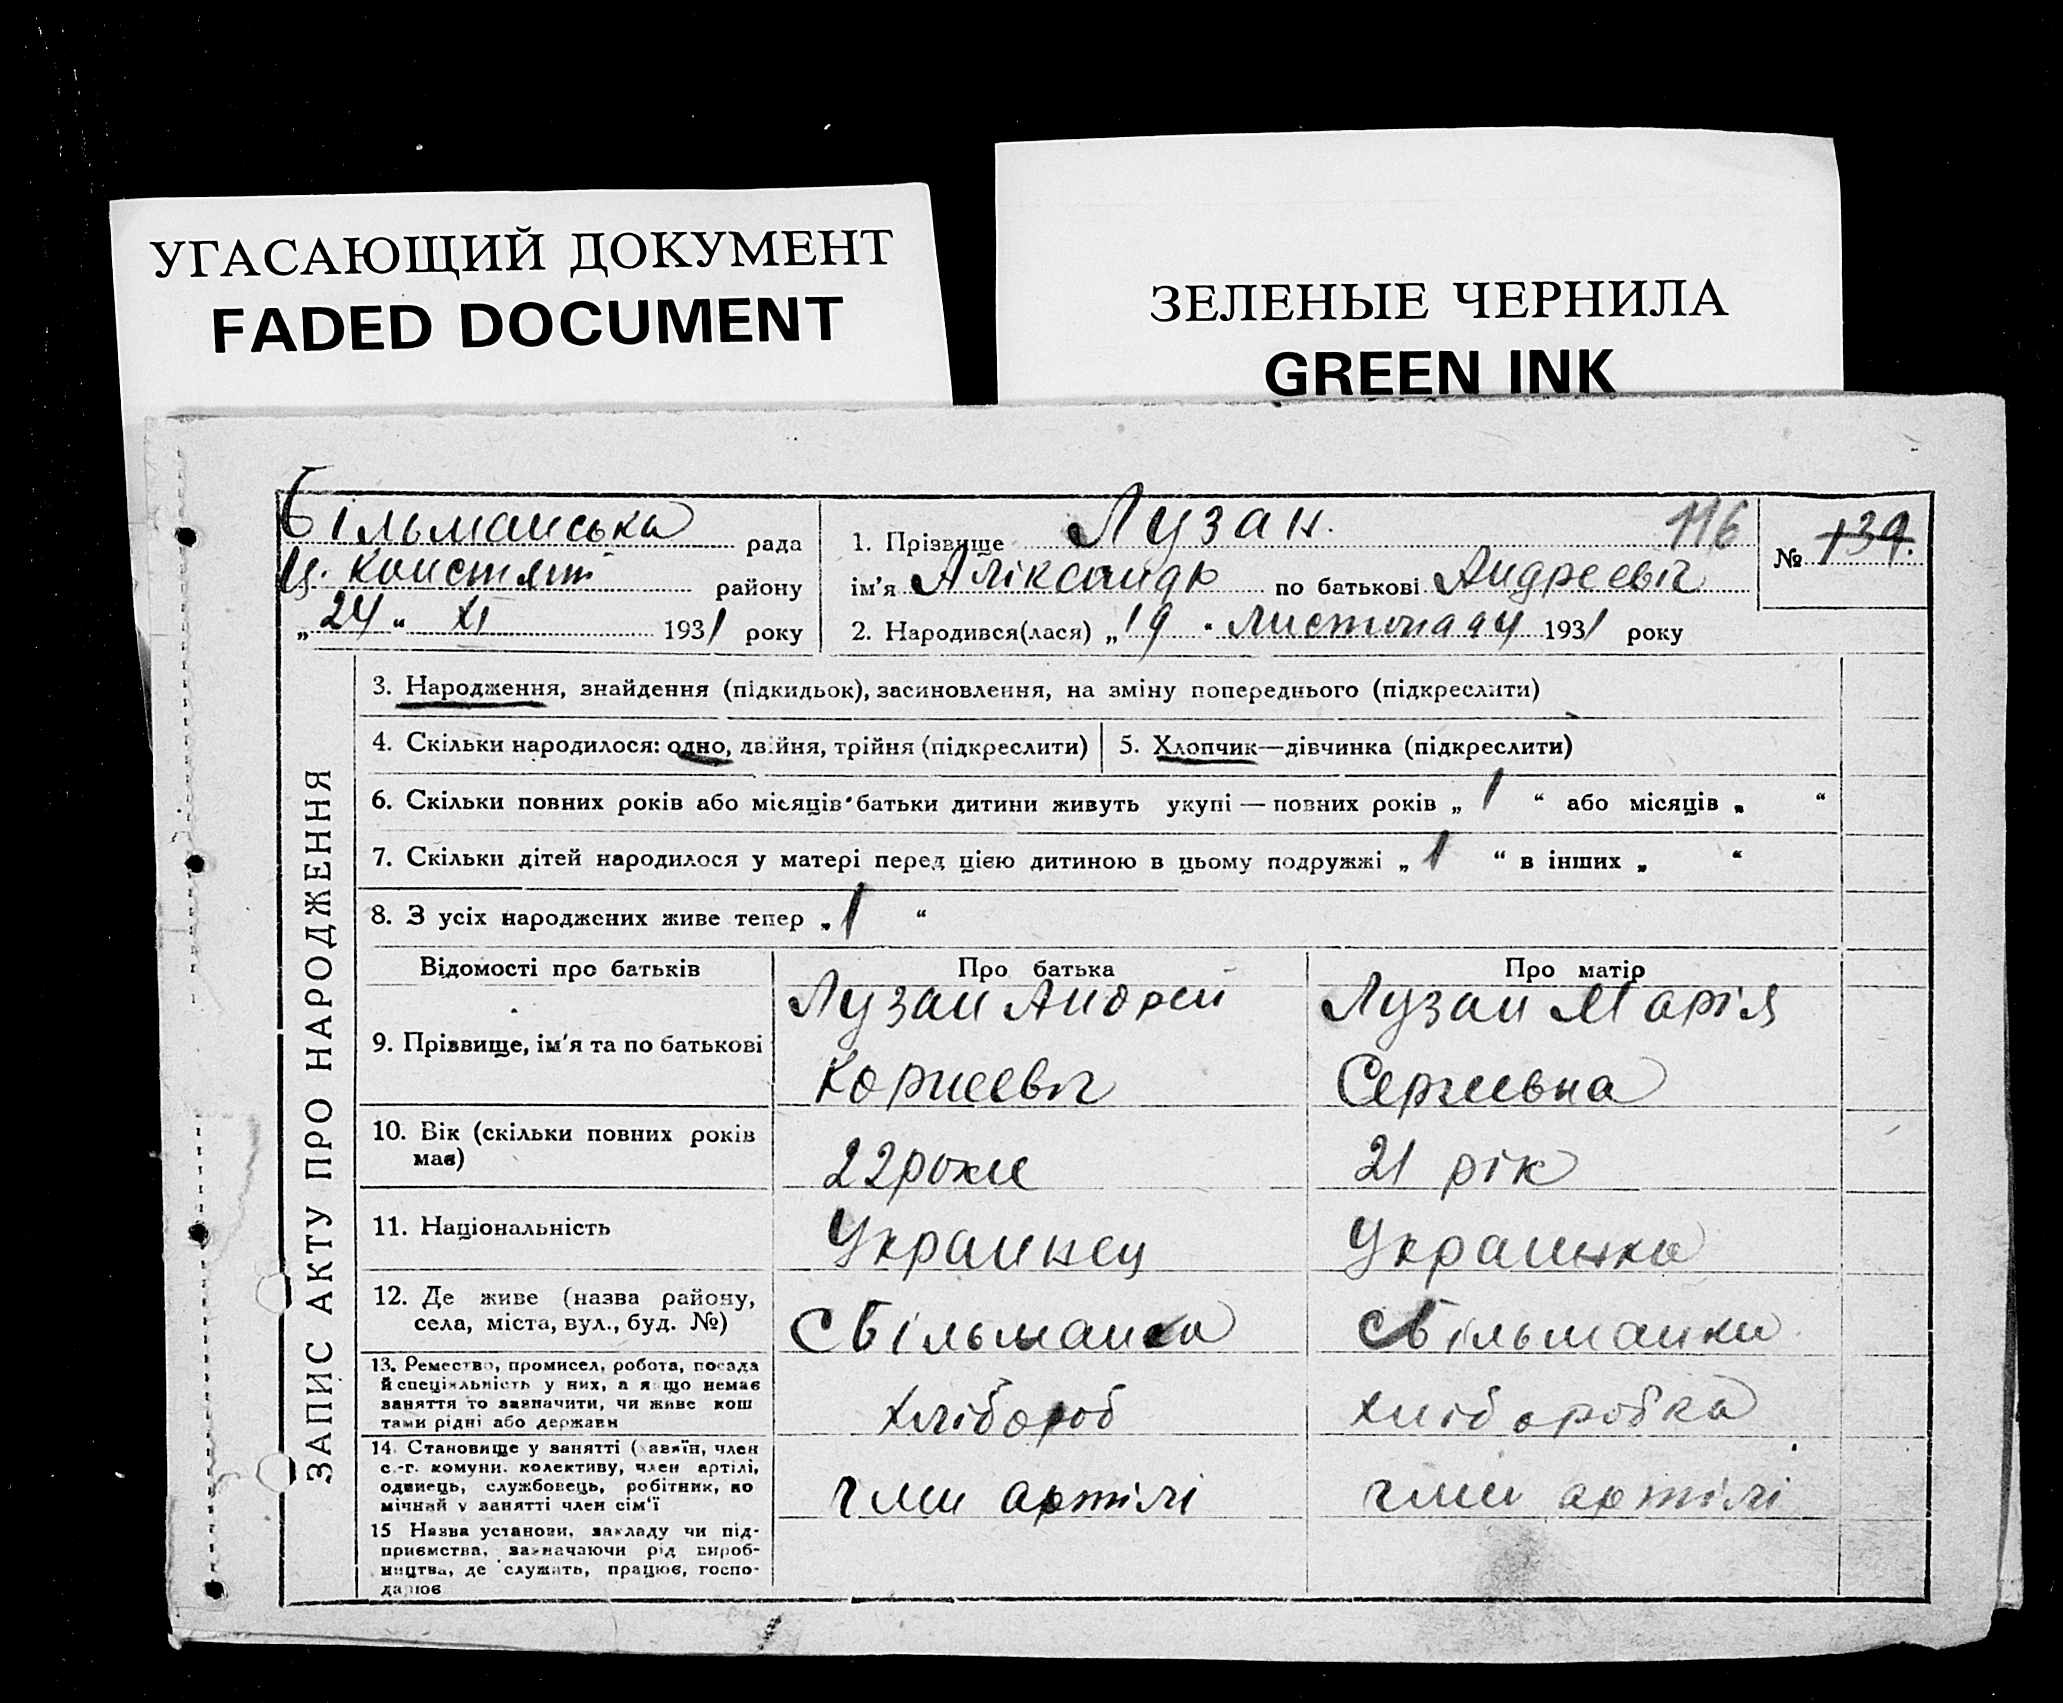 УГАСАЮЩИЙ ДОКУМЕНТ
FADED DOCUMENT
ЗЕЛЕНЫЕ ЧЕРНИЛА
GREEN INK
Більманська рада
Ц. Констят району
„ 24 “ XI 1931 року
1. Прізвище Лузан. 116
ім'я Аліксандр по батькові Андреевіч
2. Народився(лася) „ 19 “ Листопаду 1931 року
№ 139.
ЗАПИС АКТУ ПРО НАРОДЖЕННЯ
3. Народження, знайдення (підкидьок), засиновлення, на зміну попереднього (підкреслити)
4. Скільки народилося: одно, двійня, трійня (підкреслити)
5. Хлопчик—дівчинка (підкреслити)
6. Скільки повних років або місяців батьки дитини живуть укупі — повних років „ 1 “ або місяців „ “
7. Скільки дітей народилося у матері перед цією дитиною в цьому подружжі „ 1 “ в інших „ “
8. З усіх народжених живе тепер „ 1 “
Відомості про батьків
Про батька
Про матір
9. Прізвище, ім'я та по батькові
Лузан Андрей
Корнеевіч
Лузан Марія
Сергеевна
10. Вік (скільки повних років
має)
22 роки
21 рік
11. Національність
Украинец
Украинка
12. Де живе (назва району,
села, міста, вул., буд. №)
С Більманка
С Більманки
13. Ремество, промисел, робота, посада
й спеціяльність у них, а якщо немає
заняття то зазначити, чи живе кош
тами рідні або держави
Хлібороб
Хліборобка
14. Становище у занятті (хазяїн, член
с.-г. комуни. колективу, член артілі,
одинець, службовець, робітник, по
мічний у занятті член сім'ї
член артілі
член артілі
15 Назва установи, закладу чи під-
приємства, зазначаючи рід вироб-
ництва, де служить, працює, госпо-
дарює